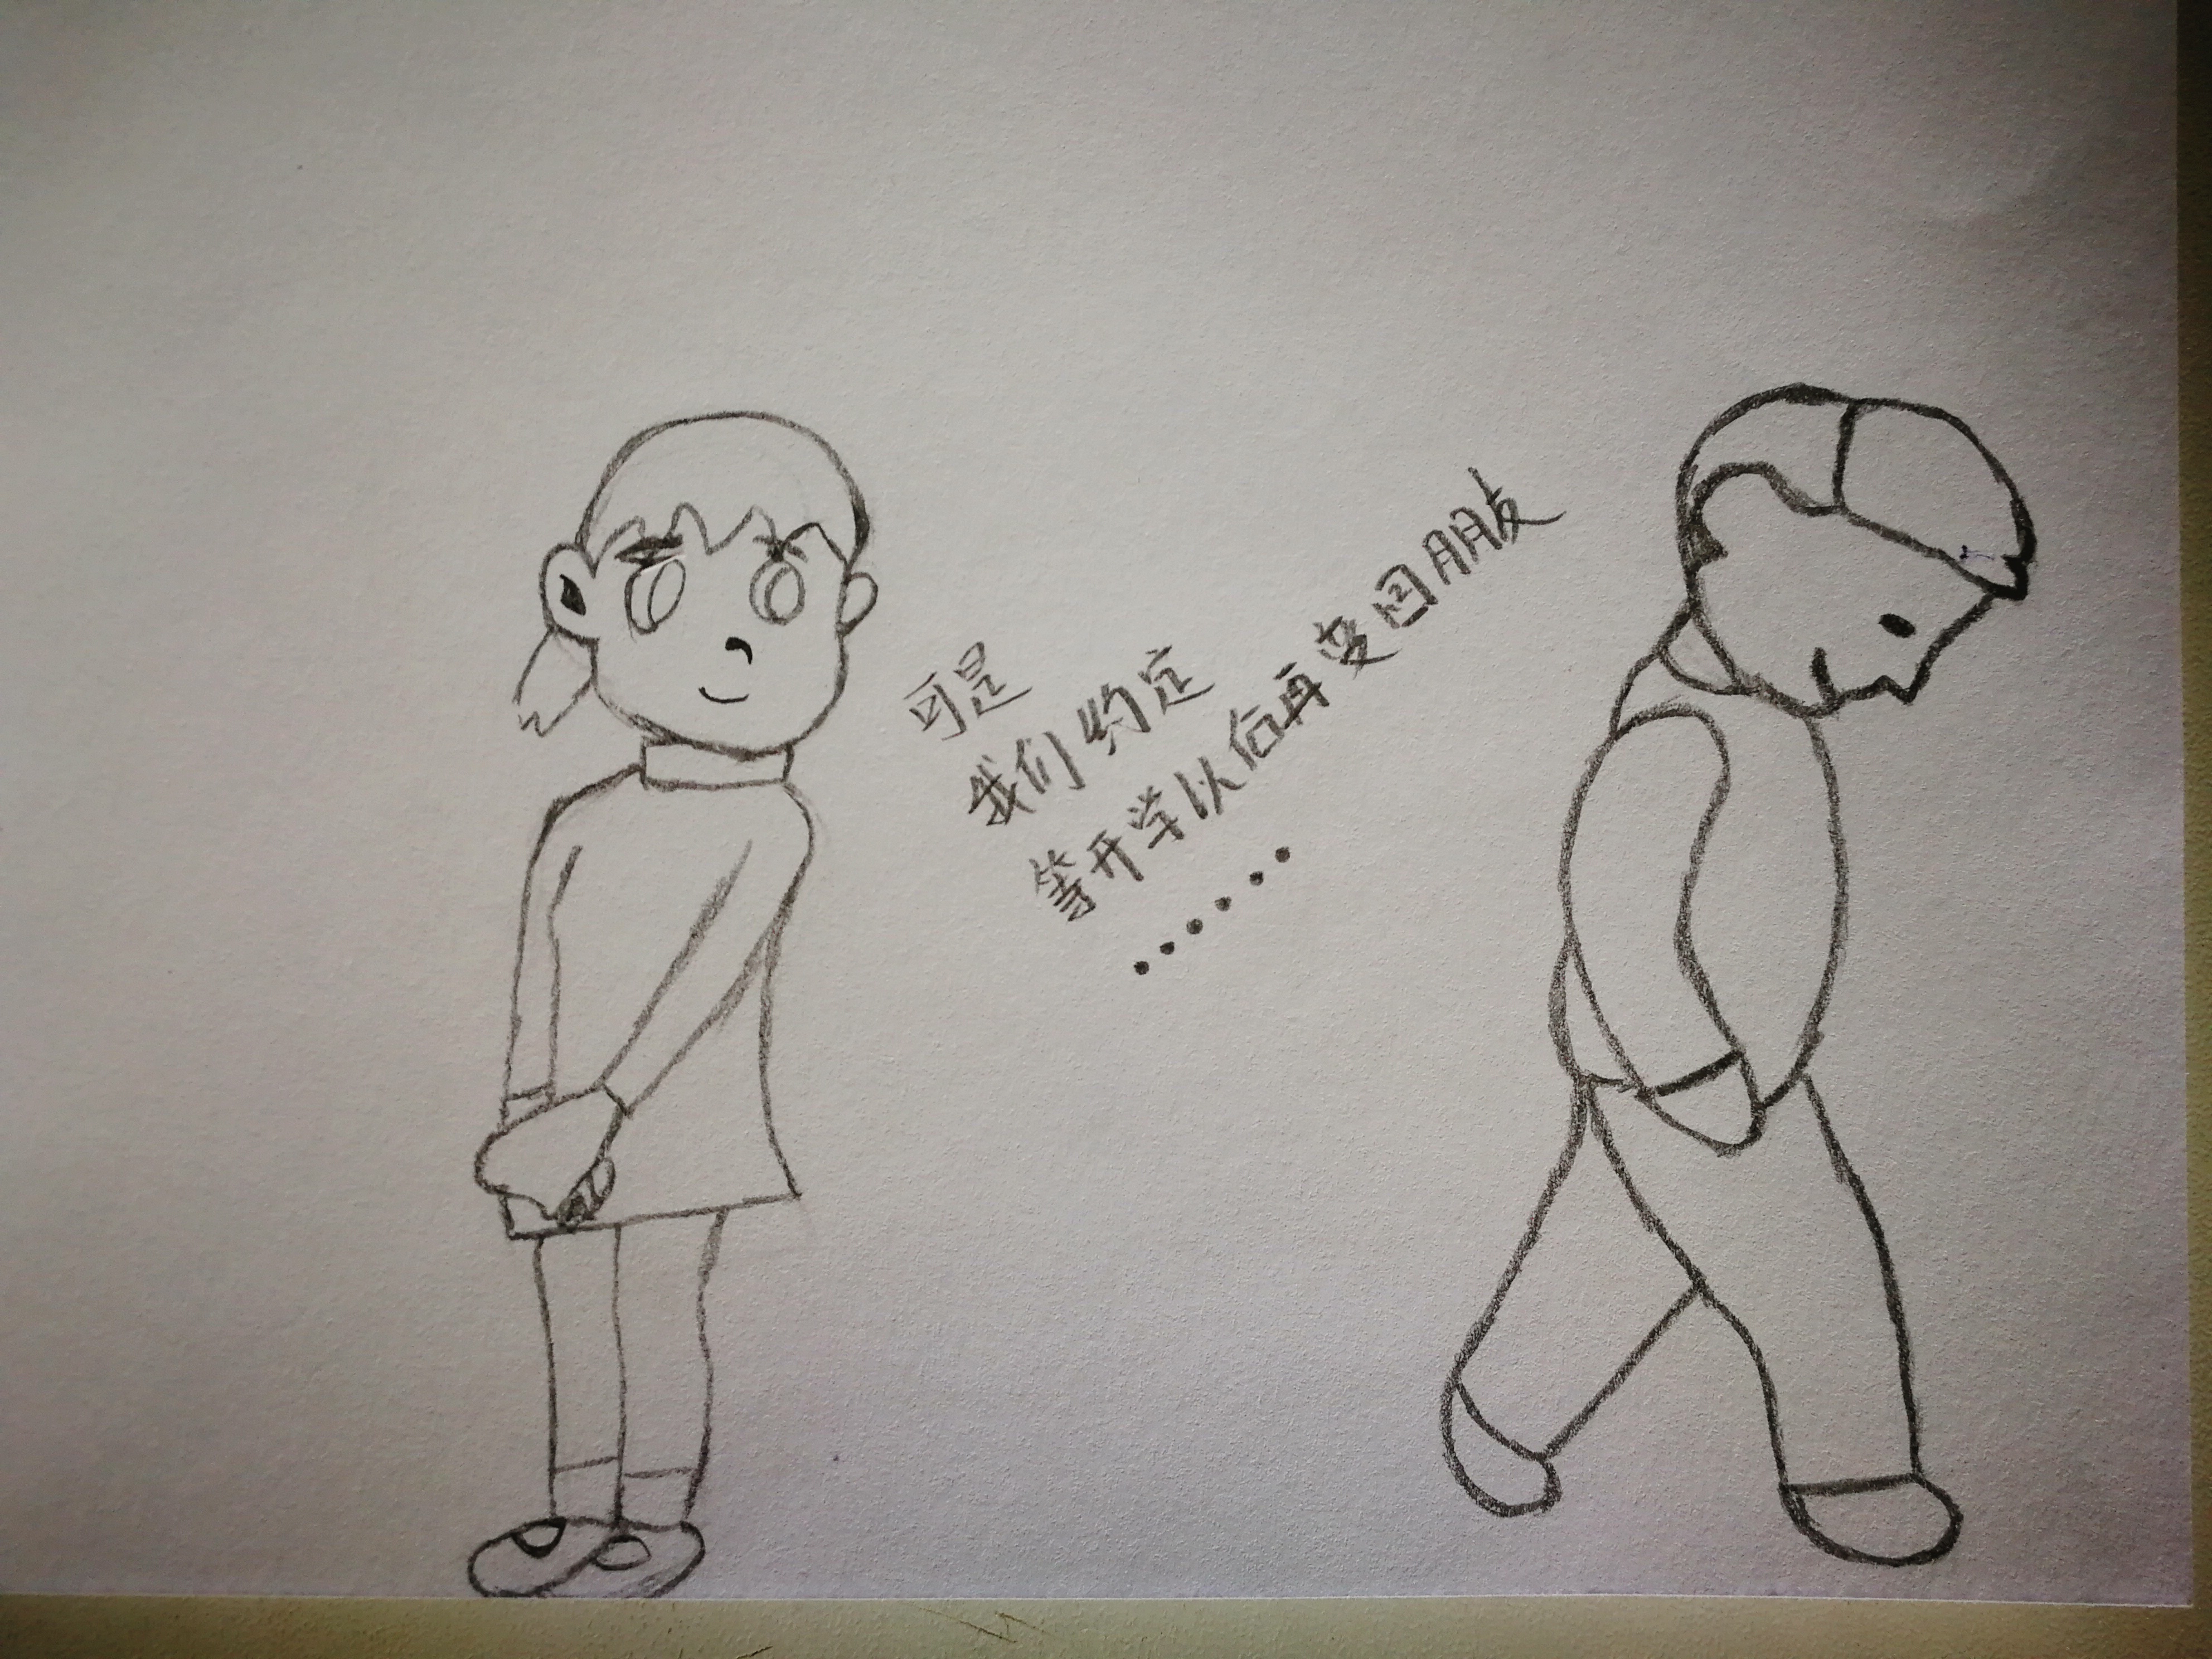 可是
我们约定
等开学以后再变回朋友
......